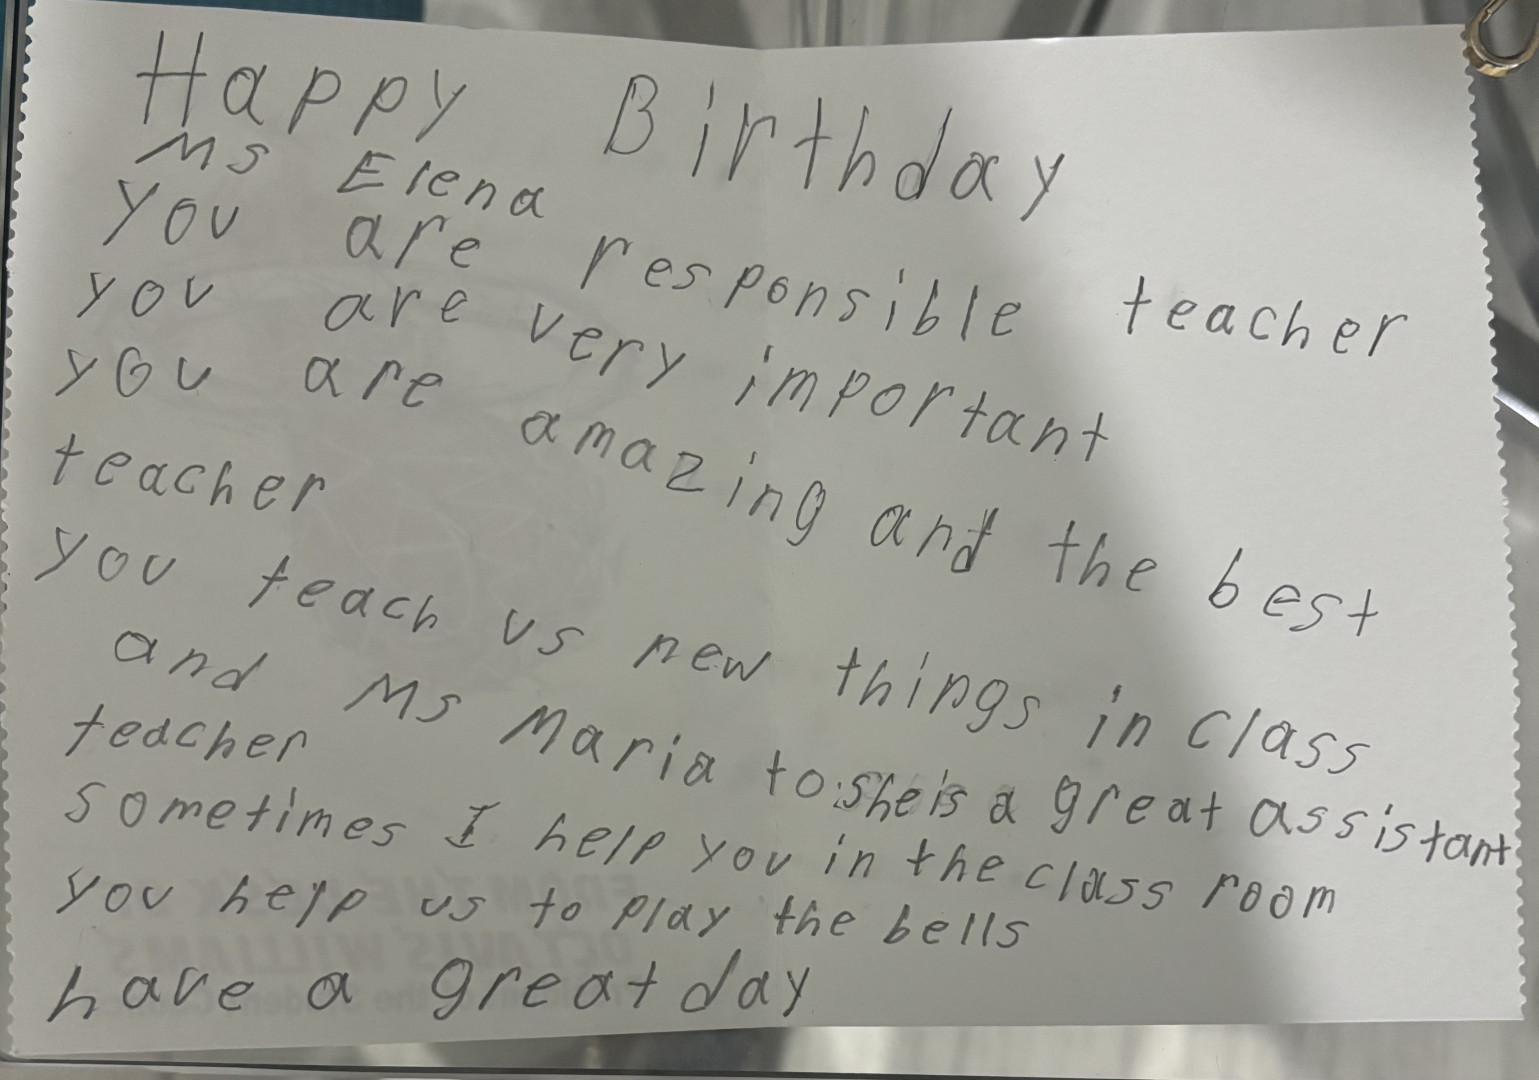 Happy Birthday
Ms Elena
you are responsible teacher
you are very important
you are amazing and the best
teacher
you teach us new things in class
and Ms Maria to she is a great assistant
teacher
sometimes I help you in the class room
you help us to play the bells
have a great day